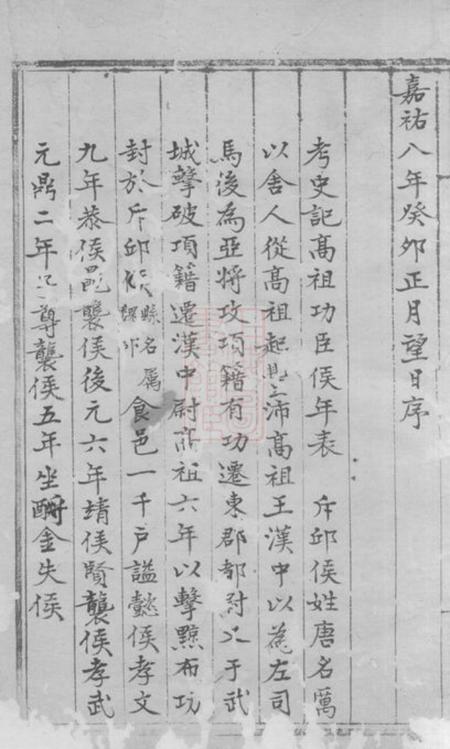 嘉祐八年癸卯正月望日序
考史記高祖功臣侯年表 斥邱侯姓唐名厲
以舍人從高祖起沛高祖王漢中以為左司
馬後為亞將攻項籍有功遷東郡都尉于武
城擊破項籍遷漢中尉高祖六年以擊黥布功
封於斥邱侯縣名屬食邑一千戶謚懿侯孝文
九年恭侯襲侯後元六年靖侯賢襲侯孝武
元鼎二年尊襲侯五年坐酎金失侯